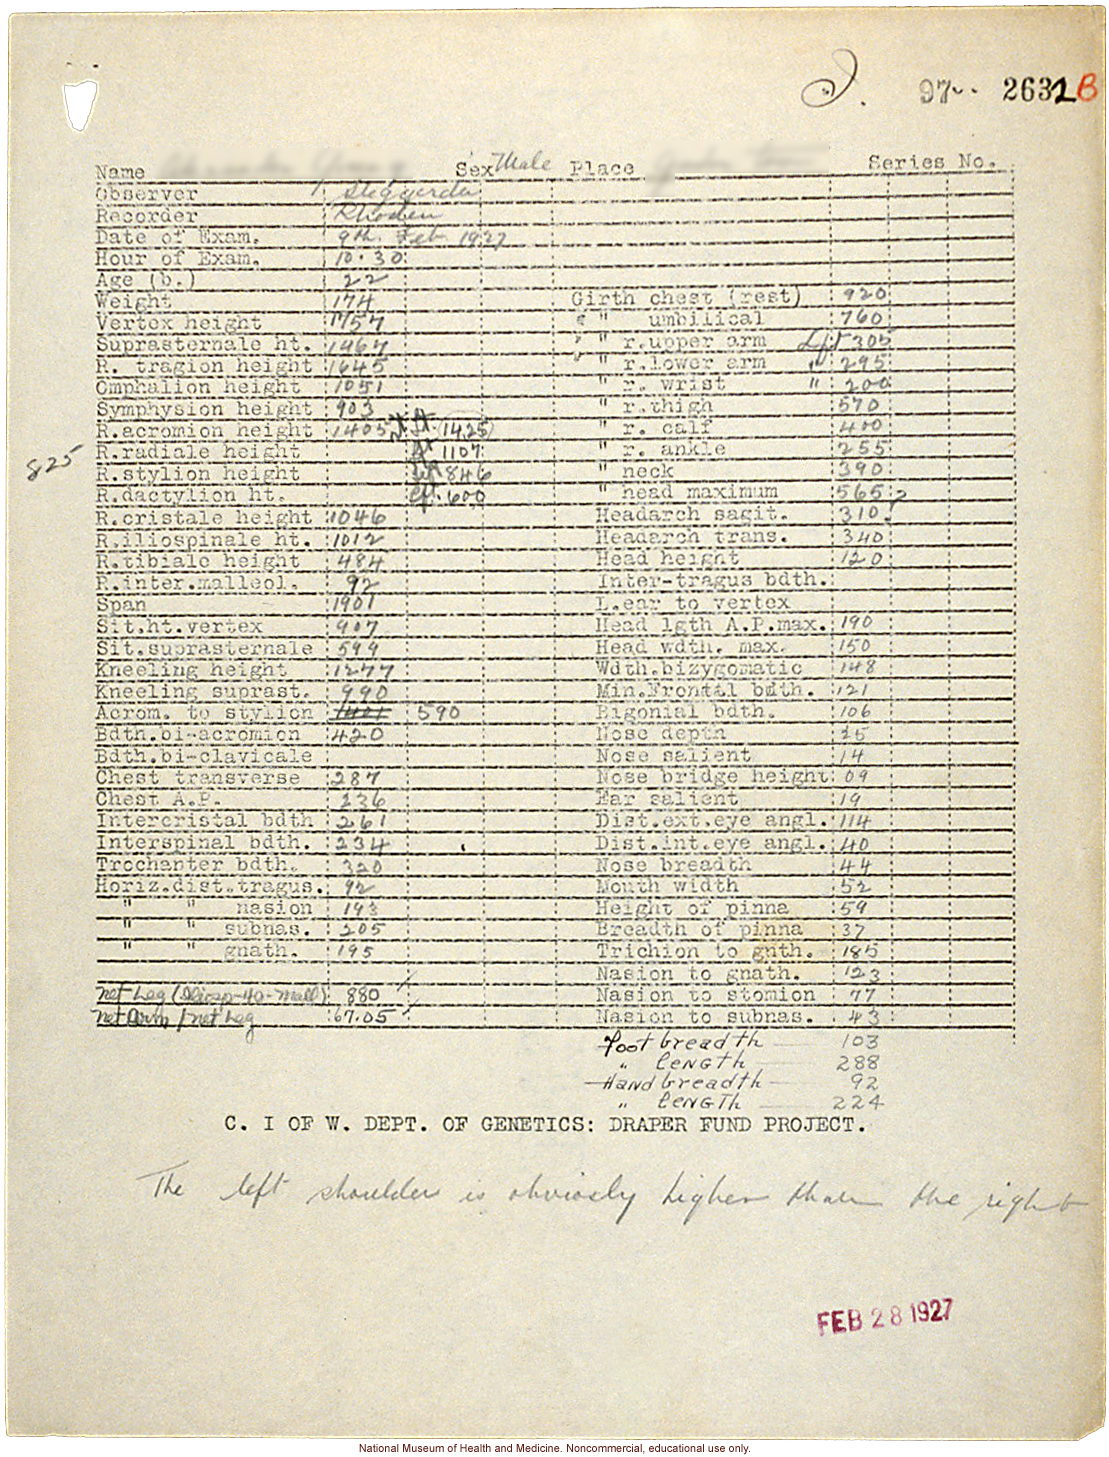 97 2631B
Name Sex Male Place Series No.
Observer Steggerda
Recorder Rhoden
Date of Exam. 9th. Feb. 1927
Hour of Exam. 10.30
Age (b.) 22
Weight 174 Girth chest (rest) 920
Vertex height 1757 " umbilical 760
Suprasternale ht. 1467 " r.upper arm Lft 305
R. tragion height 1645 " r.lower arm " 295
Omphalion height 1051 " r. wrist " 200
Symphysion height 903 " r.thigh 570
R.acromion height 1405 (1425) " r. calf 400
825 R.radiale height 1107 " r. ankle 255
R.stylion height 846 " neck 390
R.dactylion ht. 600 " head maximum 565
R.cristale height 1046 Headarch sagit. 310
R.iliospinale ht. 1012 Headarch trans. 340
R.tibiale height 484 Head height 120
R.inter.malleol. 92 Inter-tragus bdth.
Span 1901 L.ear to vertex
Sit.ht.vertex 907 Head lgth A.P.max. 190
Sit.suprasternale 599 Head wdth. max. 150
Kneeling height 1277 Wdth.bizygomatic 148
Kneeling suprast. 990 Min.Frontal bdth. 121
Acrom. to stylion 590 Bigonial bdth. 106
Bdth.bi-acromion 420 Nose depth
Bdth.bi-clavicale Nose salient 14
Chest transverse 287 Nose bridge height 09
Chest A.P. 236 Ear salient 19
Intercristal bdth 261 Dist.ext.eye angl. 114
Interspinal bdth. 234 Dist.int.eye angl. 40
Trochanter bdth. 320 Nose breadth 44
Horiz.dist.tragus. 92 Mouth width 52
" " nasion 193 Height of pinna 59
" " subnas. 205 Breadth of pinna 37
" " gnath. 195 Trichion to gnth. 185
Nasion to gnath. 123
net Leg (Iliosp-to-mall) 880 Nasion to stomion 77
net Arm / net Leg 67.05 Nasion to subnas. 43
Foot breadth 103
" LENGTh 288
Hand breadth 92
" LENGTh 224
C. I OF W. DEPT. OF GENETICS: DRAPER FUND PROJECT.
The left shoulder is obviosly higher than the right
FEB 28 1927
National Museum of Health and Medicine. Noncommercial, educational use only.